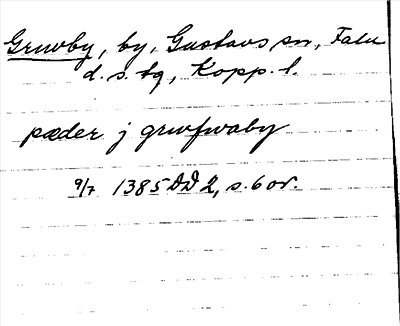 Gruvby, by, Gustavs sn, Falu
d. s. tg, Kopp. l.
pæder j grufwaby
9/7 1385 DD 2, s. 60r.